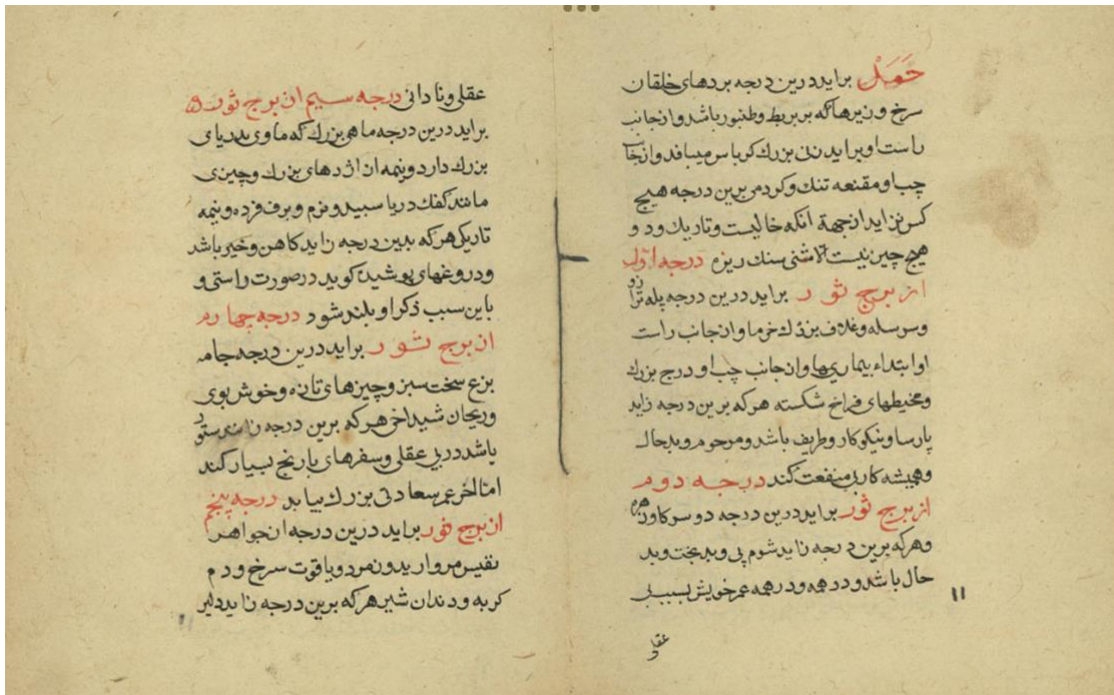 حمل براید درین درجه بردهای خلقان
سرخ و زیرها که بر بربط و طنبور باشد و از جانب
راست او براید زنی بزرك کرباس میبافد و از جانب
چپ او مقنعه تنك و کردمی برین درجه هیچ
کس نزاید از جهة آنکه خالیست و تاریك و دو
هیچ چیز نیست الا شنی سنك ریزه درجه اول
از برج ثور براید درین درجه پله ترازو
و سر سله و غلاف بزرك خرما و از جانب راست
او ابتداء بیماریها و از جانب چپ او درج بزرك
و محیطهای فراخ شکسته هر که برین درجه زاید
پارسا و نیکوکار و ظریف باشد و مرحوم و بدحال
و همیشه کار بی منفعت کند درجه دوم
از برج ثور براید درین درجه دو سر کاو نره
و هر که برین درجه زاید شوم پی و بدبخت و بد
حال باشد و در همه و در همه عمر خویش بسبب بی
عقلی
۱۱
عقلی و نادانی درجه سیم از برج ثور
براید درین درجه ماهی بزرك که ماوی بدریای
بزرك دارد و نیمه از اژدهای بزرك و چیزی
مانند کفك دریا سبید و نرم و برف فرده و نیمه
تاریکی هر که بدین درجه زاید کاهن و خیر باشد
و دروغهای پوشیده کوید در صورت راستی و
باین سبب ذکر او بلند شود درجه چهارم
از برج ثور براید درین درجه جامه
بزع سخت سبز و چیزهای تازه و خوش بوی
و ریحان شیداخی هر که برین درجه زاید
باشد در بی عقلی و سفرهای با رنج بسیار کند
اما آخر عمر سعادتی بزرك بیابد درجه پنجم
از برج ثور براید درین درجه از جواهر
نفیس مروارید و زمرد و یاقوت سرخ و دم
کربه و دندان شیر هر که برین درجه زاید دلیر